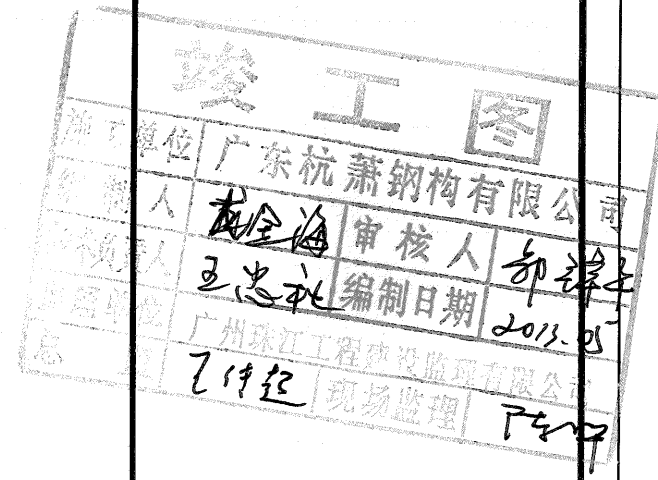 竣工图
施工单位 广东杭萧钢构有限公司
编制人 审核人
技术负责人 王忠社 编制日期 2013.05
监理单位 广州珠江工程建设监理有限公司
总监 现场监理